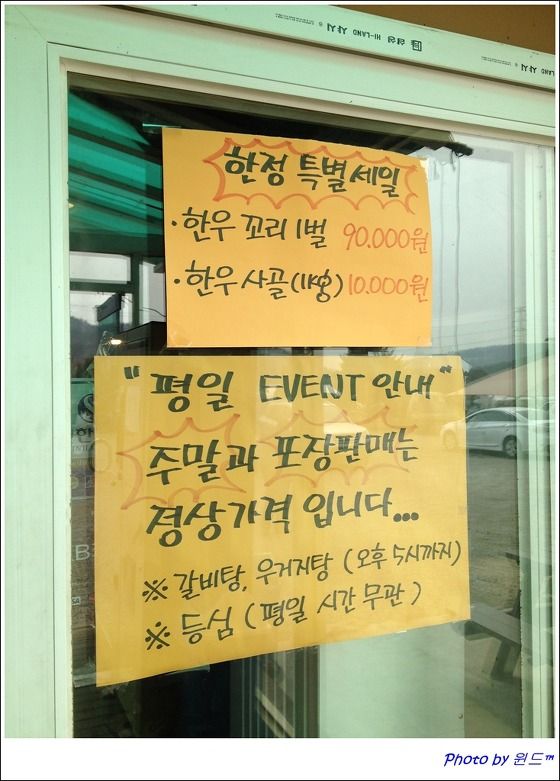 HI-LAND 샤시
한정 특별세일
· 한우 꼬리 1벌 90.000원
· 한우 사골(1kg용) 10.000원
" 평일 EVENT 안내 "
주말과 포장판매는
정상가격 입니다...
※ 갈비탕, 우거지탕 (오후 5시까지)
※ 등심 (평일 시간 무관)
Photo by 윈드™